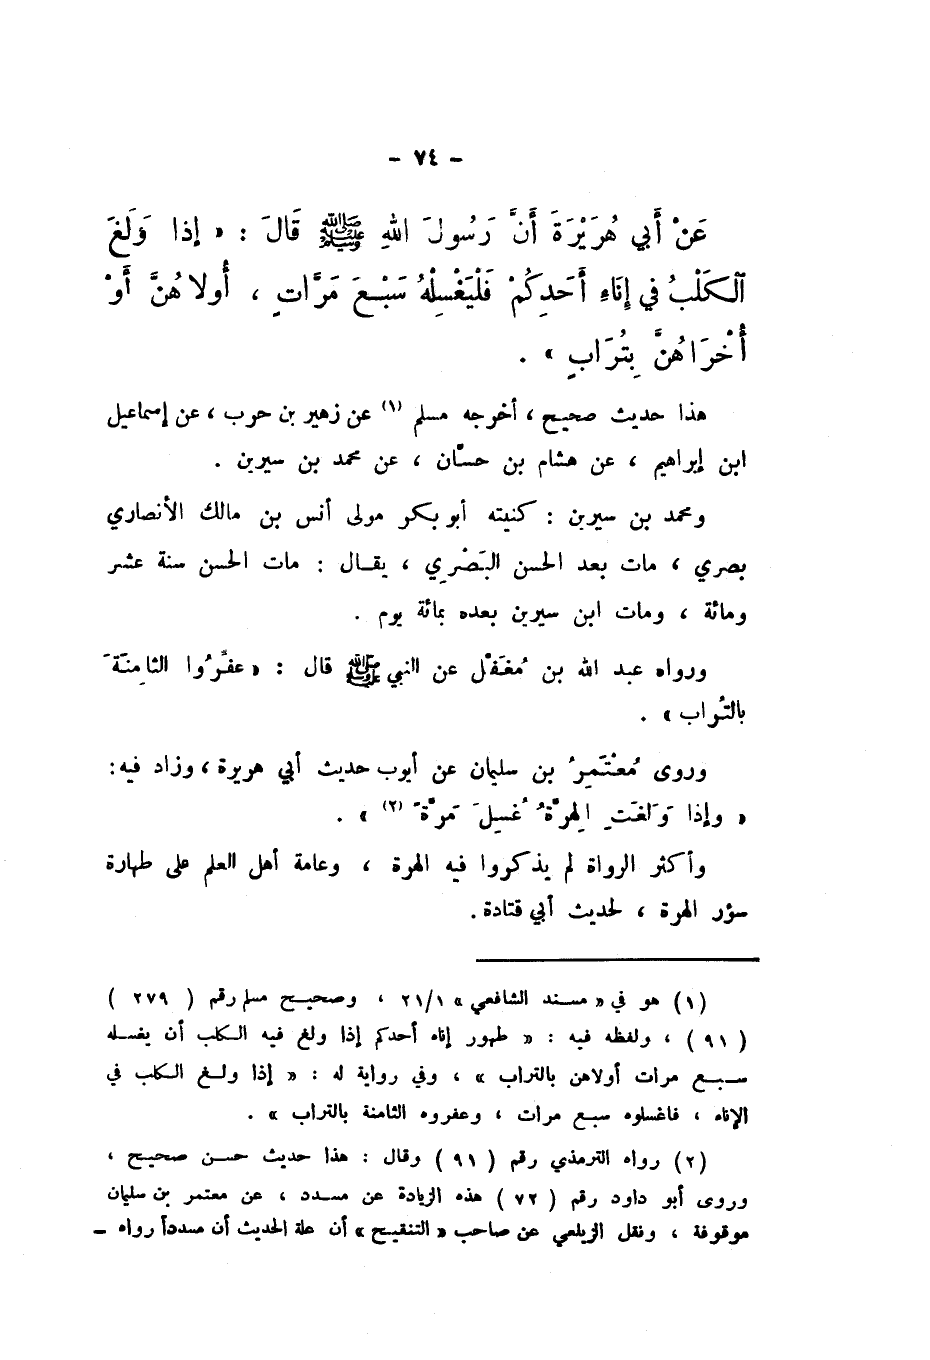 - ٧٤ -
عَنْ أَبي هُرَيْرَةَ أَنَّ رَسُولَ اللهِ ﷺ قَالَ : « إذا وَلَغَ
ٱلكَلْبُ في إنَاءِ أَحَدِكُمْ فَلْيَغْسِلْهُ سَبْعَ مَرَّاتٍ ، أُولاهُنَّ أَوْ
أُخْرَاهُنَّ بِتُرَابٍ » .
هذا حديث صحيح ، أخرجه مسلم (١) عن زهير بن حرب ، عن إسماعيل
ابن إبراهيم ، عن هشام بن حسَّان ، عن محمد بن سيرين .
ومحمد بن سيرين : كنيته أبو بكر مولى أنس بن مالك الأنصاري
بصري ، مات بعد الحسن البَصْرِي ، يقال : مات الحسن سنة عشر
ومائة ، ومات ابن سيرين بعده بمائة يوم .
ورواه عبد الله بن مُغَفَّل عن النبي ﷺ قال : « عفِّرُوا الثامِنَةَ
بالتُّراب » .
وروى مُعْتَمِرُ بن سليمان عن أيوب حديث أبي هريرة ، وزاد فيه :
« وإذا وَلَغَتِ الهِرَّةُ غُسِلَ مَرَّةً (٢) » .
وأكثر الرواة لم يذكروا فيه الهرة ، وعامة أهل العلم على طهارة
سؤر الهرة ، لحديث أبي قتادة .
(١) هو في « مسند الشافعي » ٢١/١ ، وصحيح مسلم رقم ( ٢٧٩ )
( ٩١ ) ، ولفظه فيه : « طهور إناء أحدكم إذا ولغ فيه الكلب أن يغسله
سبع مرات أولاهن بالتراب » ، وفي رواية له : « إذا ولغ الكلب في
الإناء ، فاغسلوه سبع مرات ، وعفروه الثامنة بالتراب » .
(٢) رواه الترمذي رقم ( ٩١ ) وقال : هذا حديث حسن صحيح ،
وروى أبو داود رقم ( ٧٢ ) هذه الزيادة عن مسدد ، عن معتمر بن سليمان
موقوفة ، ونقل الزيلعي عن صاحب « التنقيح » أن علة الحديث أن مسدداً رواه -